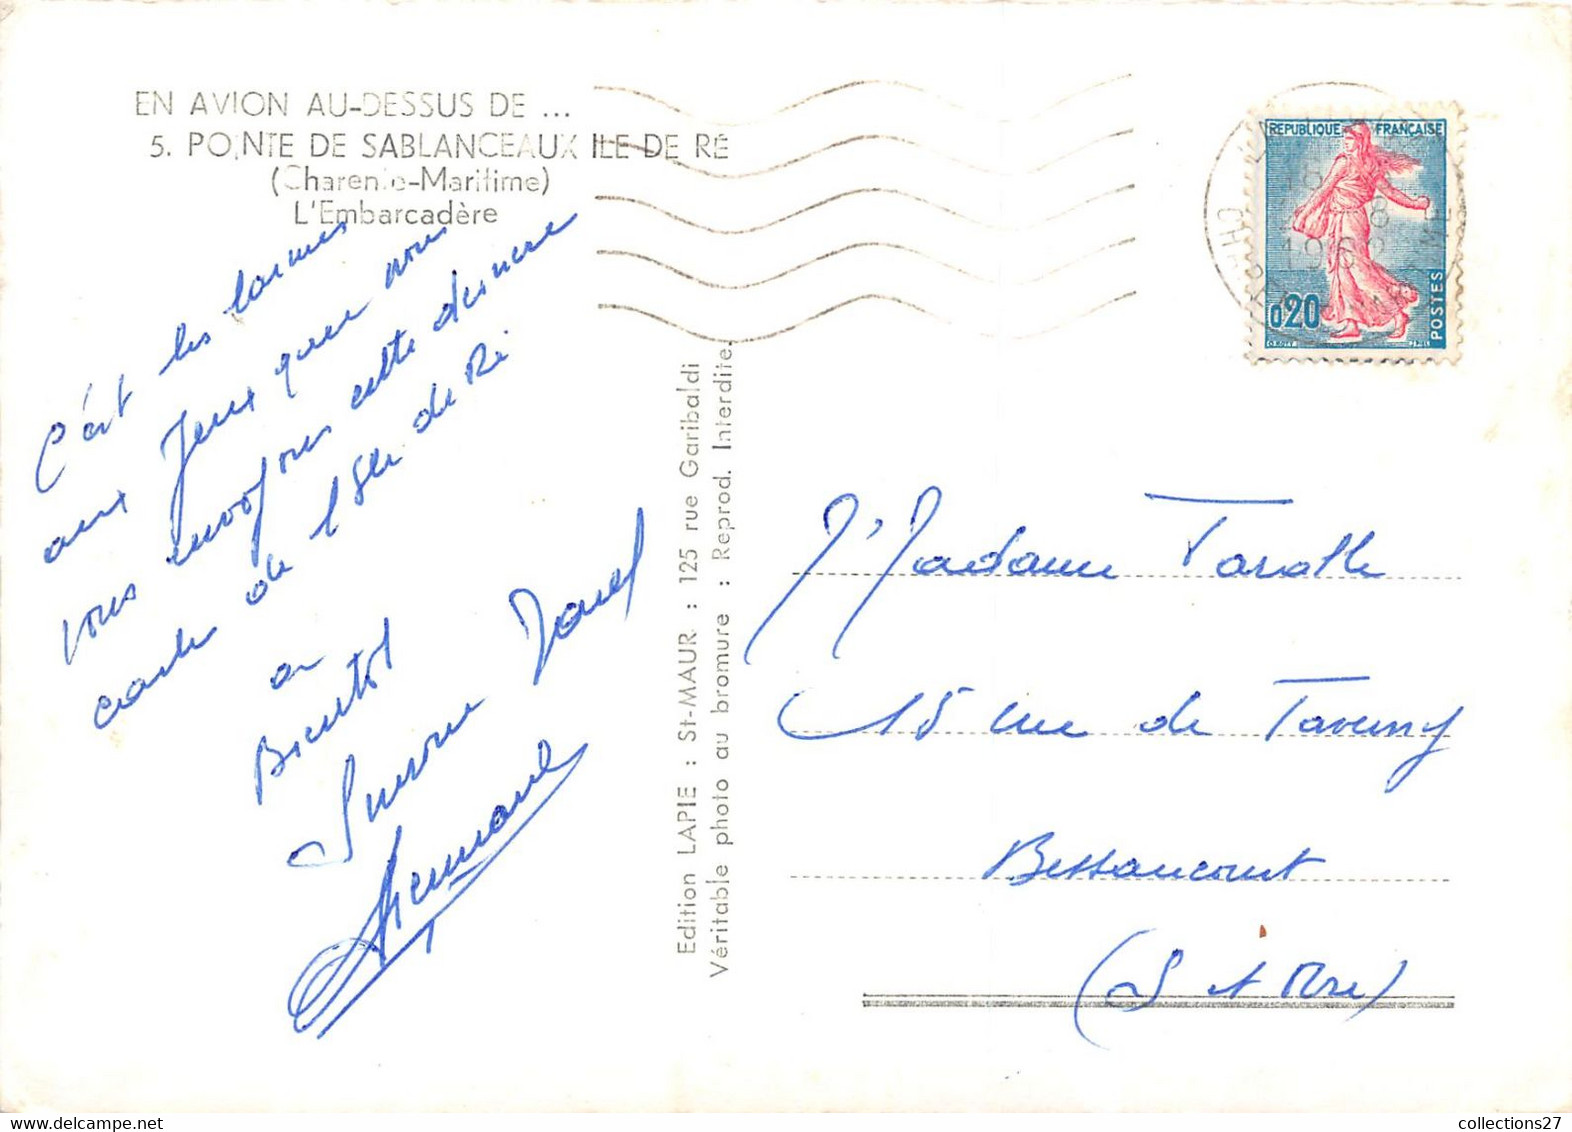 EN AVION AU-DESSUS DE ...
5. POINTE DE SABLANCEAUX ILE DE RÉ
(Charente-Maritime)
L'Embarcadère
C'est les larmes
aux yeux que nous
vous envoyons cette dernière
carte de l'Ile de Ré
a
Bientot
Simone
Edition LAPIE : St-MAUR : 125 rue Garibaldi
Véritable photo au bromure : Reprod. Interdite.
REPUBLIQUE FRANÇAISE
0,20
POSTES
18
8
196
M. Madame
15 rue de Taverny
Bessancourt
(S et Oise)
collections27